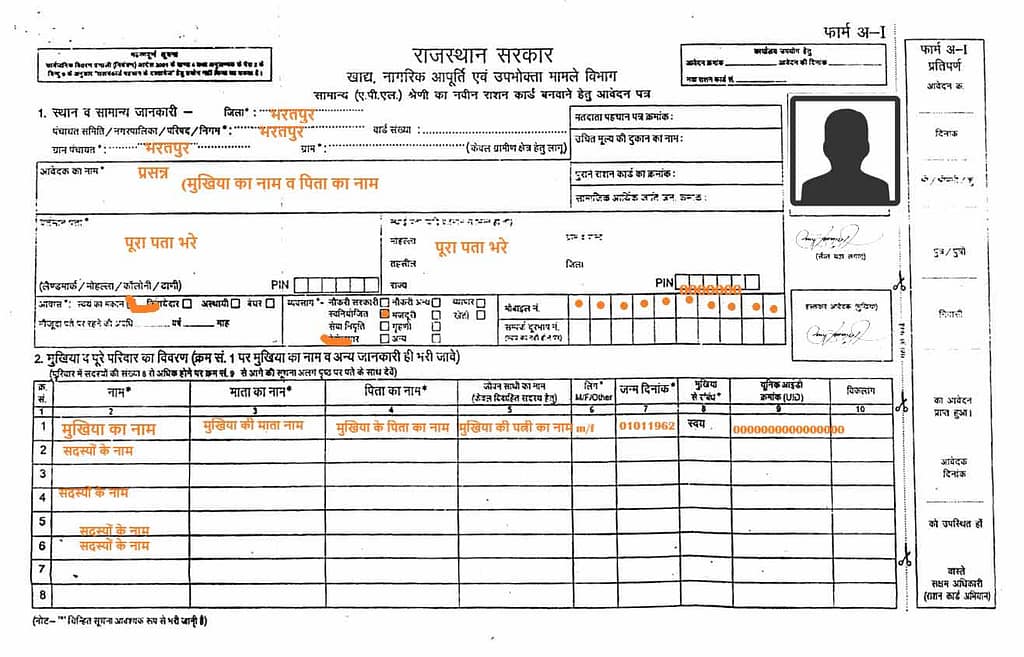 फार्म अ-I
महत्वपूर्ण सूचना
राजस्थान सरकार
खाद्य, नागरिक आपूर्ति एवं उपभोक्ता मामले विभाग
सामान्य (ए.पी.एल.) श्रेणी का नवीन राशन कार्ड बनवाने हेतु आवेदन पत्र
कार्यालय उपयोग हेतु
आवेदन क्रमांक आवेदन की दिनांक
नया राशन कार्ड सं.
1. स्थान व सामान्य जानकारी – जिला* : भरतपुर
पंचायत समिति/नगरपालिका/परिषद/निगम* : भरतपुर वार्ड संख्या :
ग्राम पंचायत* : भरतपुर ग्राम* : (केवल ग्रामीण क्षेत्र हेतु लागू)
मतदाता पहचान पत्र क्रमांक :
उचित मूल्य की दुकान का नाम :
पुराने राशन कार्ड का क्रमांक :
आवेदक का नाम* प्रसन्न
(मुखिया का नाम व पिता का नाम
पूरा पता भरे
मोहल्ला पूरा पता भरे
तहसील जिला
(लैण्डमार्क/मोहल्ला/कॉलोनी/ढाणी) PIN
राज्य PIN
आवास* : स्वयं का मकान अस्थायी बेघर
व्यवसाय* - नौकरी सरकारी नौकरी अन्य व्यापार
स्वनियोजित मजदूरी खेती
सेवा निवृति गृहणी
अन्य
मोबाइल नं.
वर्ष माह
2. मुखिया व पूरे परिवार का विवरण (क्रम सं. 1 पर मुखिया का नाम व अन्य जानकारी ही भरी जावे)
(परिवार में सदस्यों की संख्या 8 से अधिक होने पर क्रम सं. 9 से आगे की सूचना अलग पृष्ठ पर पते के साथ देवें)
क्र. सं. नाम* माता का नाम* पिता का नाम* जीवन साथी का नाम (केवल विवाहित सदस्य हेतु) लिंग* M/F/Other जन्म दिनांक* मुखिया से संबंध* यूनिक आइडी क्रमांक (UID) विकलांग
1 2 3 4 5 6 7 8 9 10
1 मुखिया का नाम मुखिया की माता नाम मुखिया के पिता का नाम मुखिया की पत्नी का नाम m/f 01011962 स्वय 0000000000000000
2 सदस्यों के नाम
3
4 सदस्यों के नाम
5 सदस्यों के नाम
6 सदस्यों के नाम
7
8
(नोट– "*" चिन्हित सूचना आवश्यक रूप से भरी जानी है)
फार्म अ-I
प्रतिपर्ण
आवेदन क.
दिनांक
पुत्र/पुत्री
निवासी
का आवेदन
प्राप्त हुआ।
आवेदक
दिनांक
को उपस्थित हों
वास्ते
सक्षम अधिकारी
(राशन कार्ड अभियान)